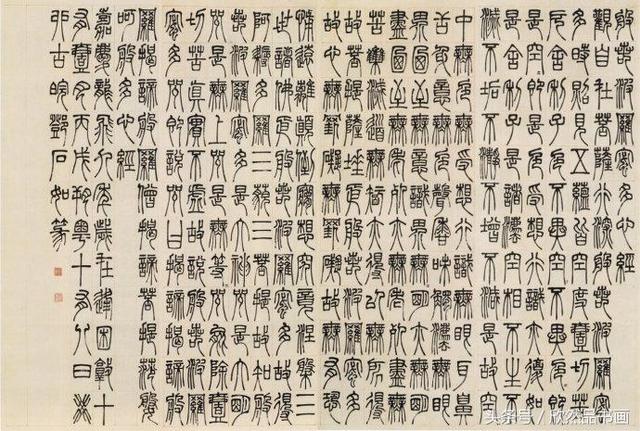 般若波羅蜜多心經
觀自在菩薩行深般若波羅蜜
多時照見五蘊皆空度一切苦
厄舍利子色不異空空不異色色即
是空空即是色受想行識亦復如
是舍利子是諸法空相不生不
滅不垢不淨不增不減是故空
中無色無受想行識無眼耳鼻
舌身意無色聲香味觸法無眼
界乃至無意識界無無明亦無無明
盡乃至無老死亦無老死盡無
苦集滅道無智亦無得以無所得
故菩提薩埵依般若波羅蜜多
故心無罣礙無罣礙故無有恐
怖遠離顛倒夢想究竟涅槃三
世諸佛依般若波羅蜜多故得
阿耨多羅三藐三菩提故知般
若波羅蜜多是大神咒是大明
咒是無上咒是無等等咒能除一
切苦真實不虛故說般若波羅
蜜多咒即說咒曰揭諦揭諦般
羅揭諦般羅僧揭諦菩提薩婆
呵般若多心經
嘉慶龍飛九年歲在逢困敦十
有一月丙戌朔粵十有八日
古皖鄧石如篆
头条号 / 欣然品书画